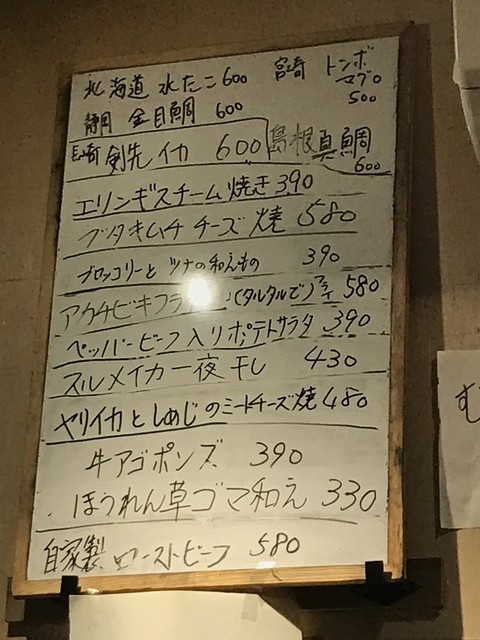 北海道 水たこ 600
宮崎 トンボマグロ 500
静岡 金目鯛 600
長崎 剣先イカ 600
島根真鯛 600
エリンギスチーム焼き 390
ブタキムチチーズ焼 580
ブロッコリーとツナの和えもの 390
アカチビキフライ (タルタルで) 580
ペッパービーフ入りポテトサラダ 390
スルメイカ一夜干し 430
ヤリイカとしめじのミートチーズ焼 480
牛アゴポンズ 390
ほうれん草ゴマ和え 330
自家製ローストビーフ 580
む